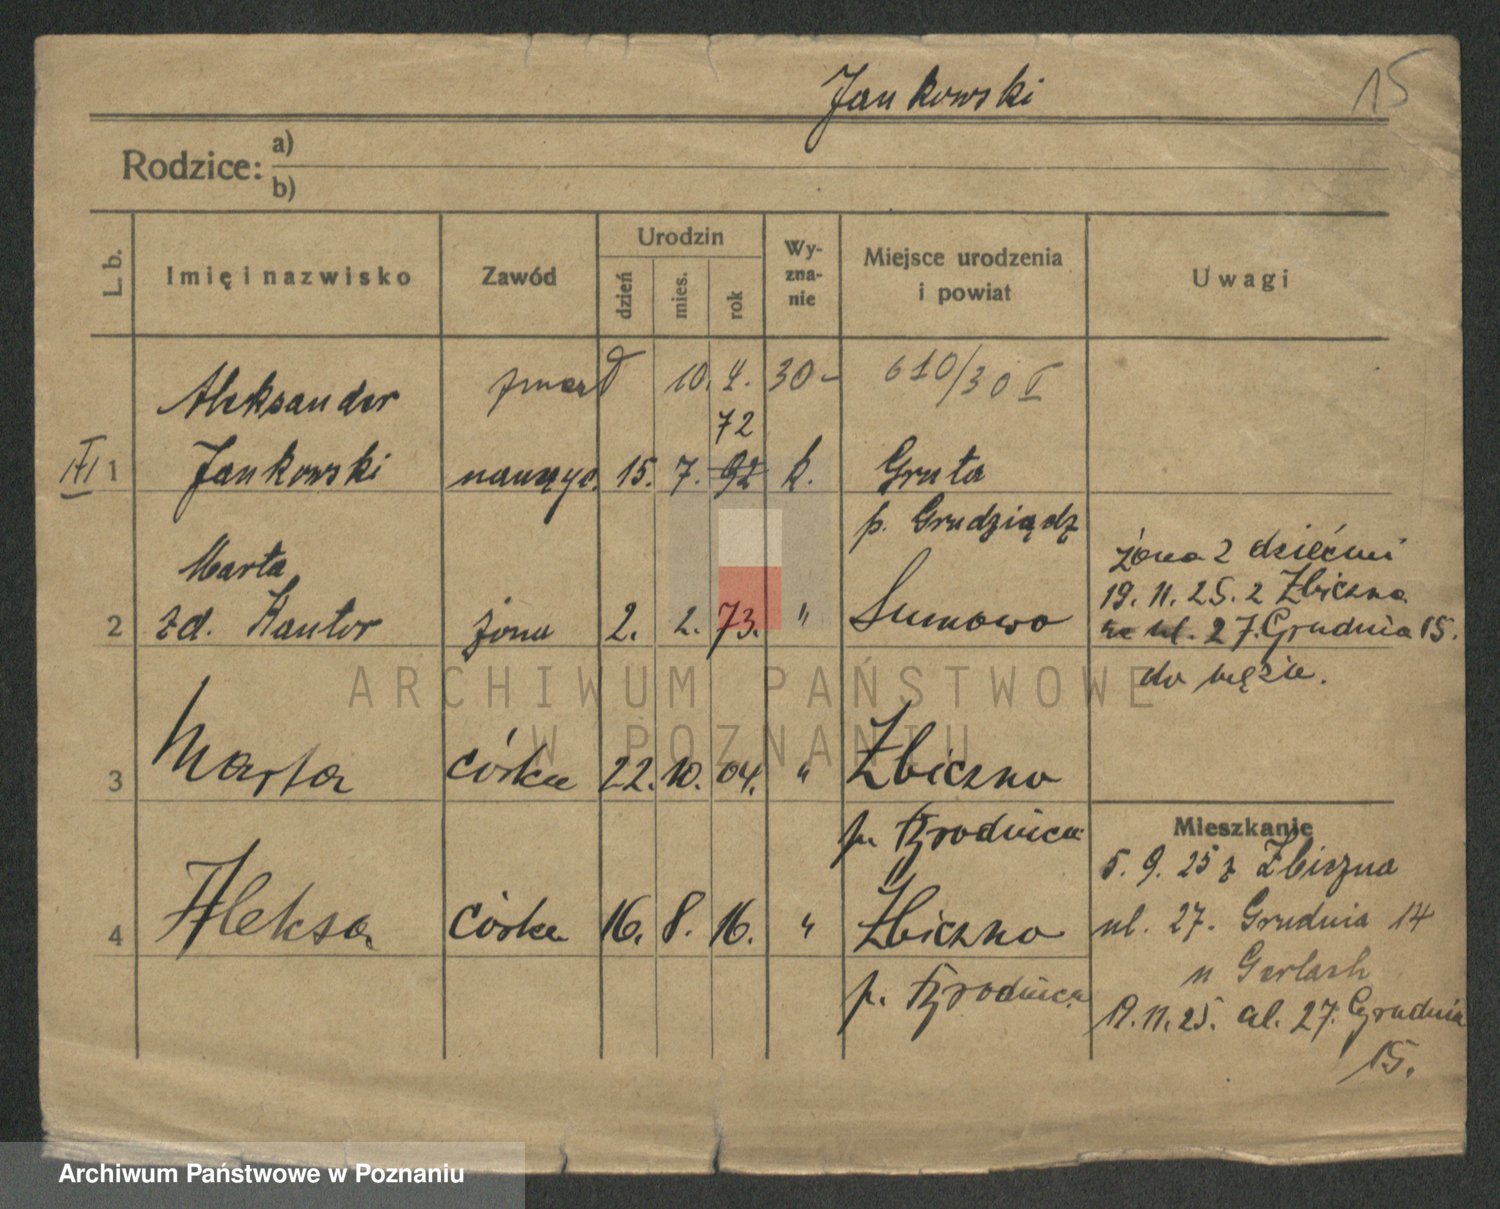 Jankowski
15
Rodzice: a)
b)
L. b.
Imię i nazwisko
Zawód
Urodzin
dzień
mies.
rok
Wy-
zna-
nie
Miejsce urodzenia
i powiat
Uwagi
zmarł 10. 4. 30 - 610/30 I
Aleksander
72
1 Jankowski nauczyc. 15. 7. 92 k. Gruta
p. Grudziądz
Marta
2 zd. Kantor żona 2. 2. 73. " Sumowo
żona z dziećmi
19. 11. 25. z Zbiczna
ul. 27. Grudnia 15.
do męża.
3 Marta córka 22. 10. 04. " Zbiczno
p. Brodnica
4 Aleksa córka 16. 8. 16. " Zbiczno
p. Brodnica
Mieszkanie
5. 9. 25 z Zbiczna
ul. 27. Grudnia 14
u Gerlach
19. 11. 25. ul. 27. Grudnia
15.
ARCHIWUM PAŃSTWOWE
W POZNANIU
Archiwum Państwowe w Poznaniu